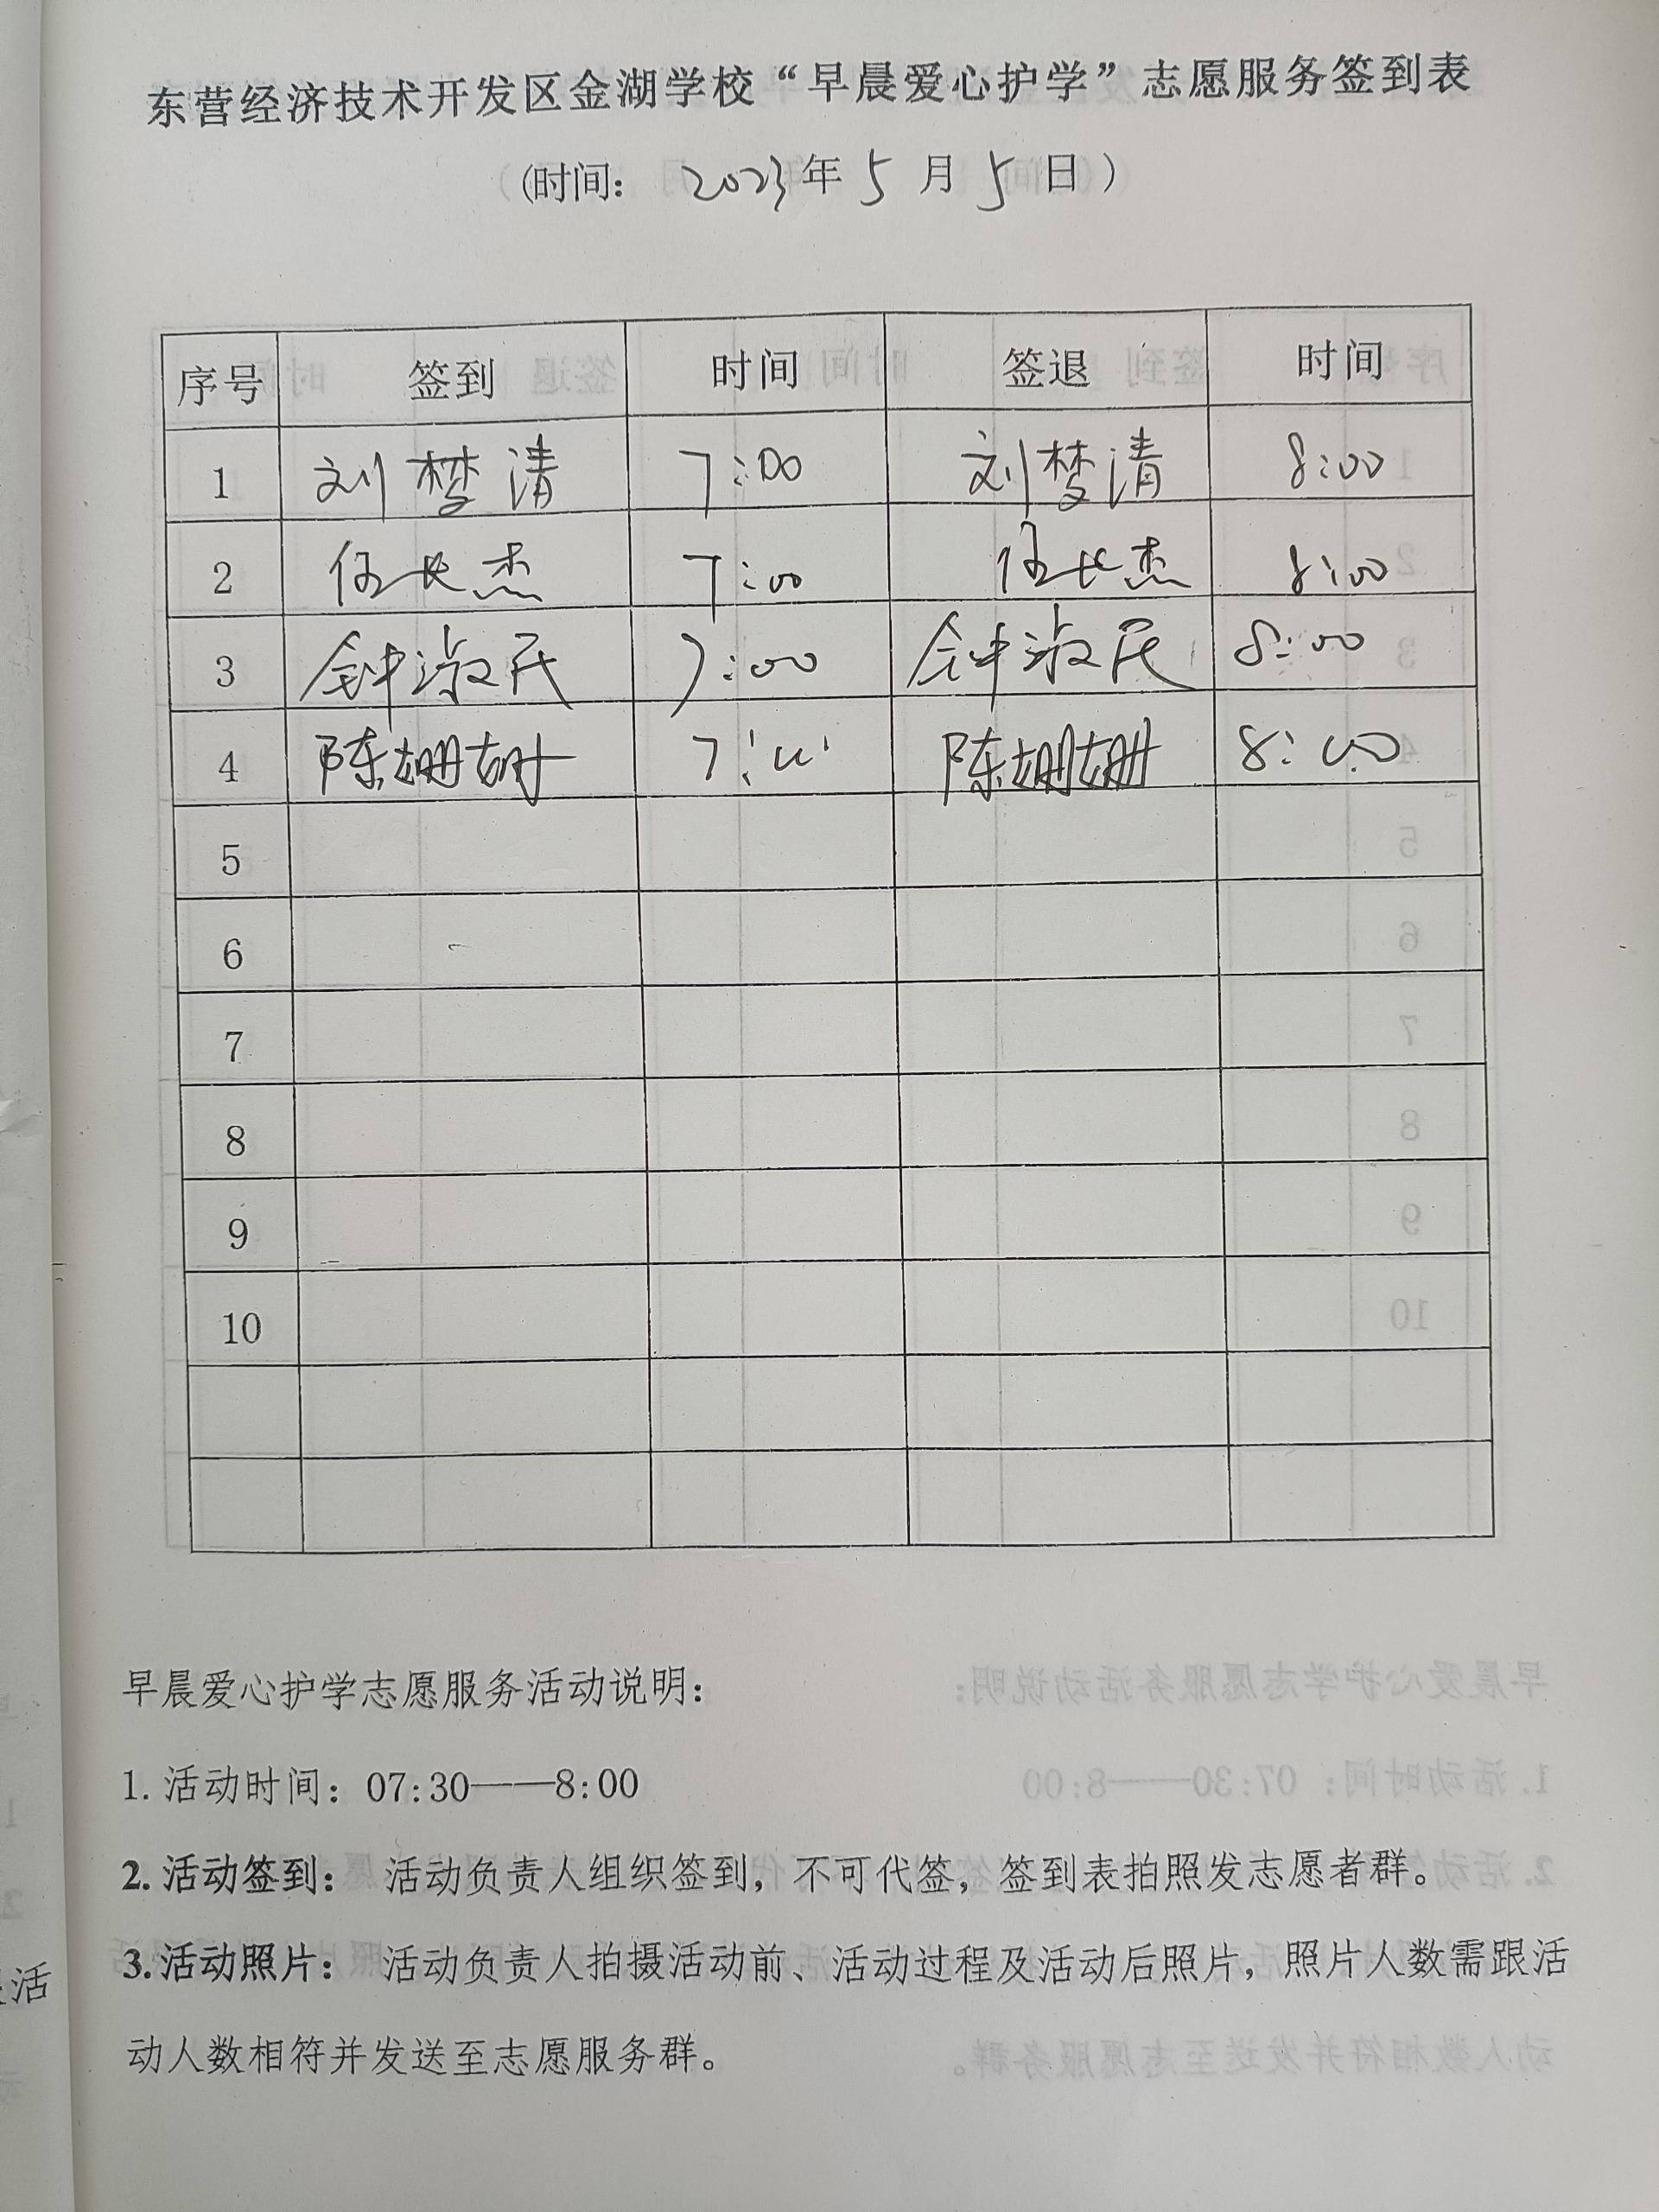 东营经济技术开发区金湖学校“早晨爱心护学”志愿服务签到表
(时间: 2023年5月5日)
序号 签到 时间 签退 时间
1 刘梦清 7:00 刘梦清 8:00
2 任长杰 7:00 任长杰 8:00
3 钟淑民 7:00 钟淑民 8:00
4 陈姗姗 7:00 陈姗姗 8:00
5
6
7
8
9
10
早晨爱心护学志愿服务活动说明:
1. 活动时间: 07:30——8:00
2. 活动签到: 活动负责人组织签到，不可代签，签到表拍照发志愿者群。
3. 活动照片: 活动负责人拍摄活动前、活动过程及活动后照片，照片人数需跟活
动人数相符并发送至志愿服务群。